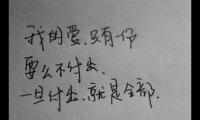 我的爱.只有一份
要么不付出.
一旦付出.就是全部.